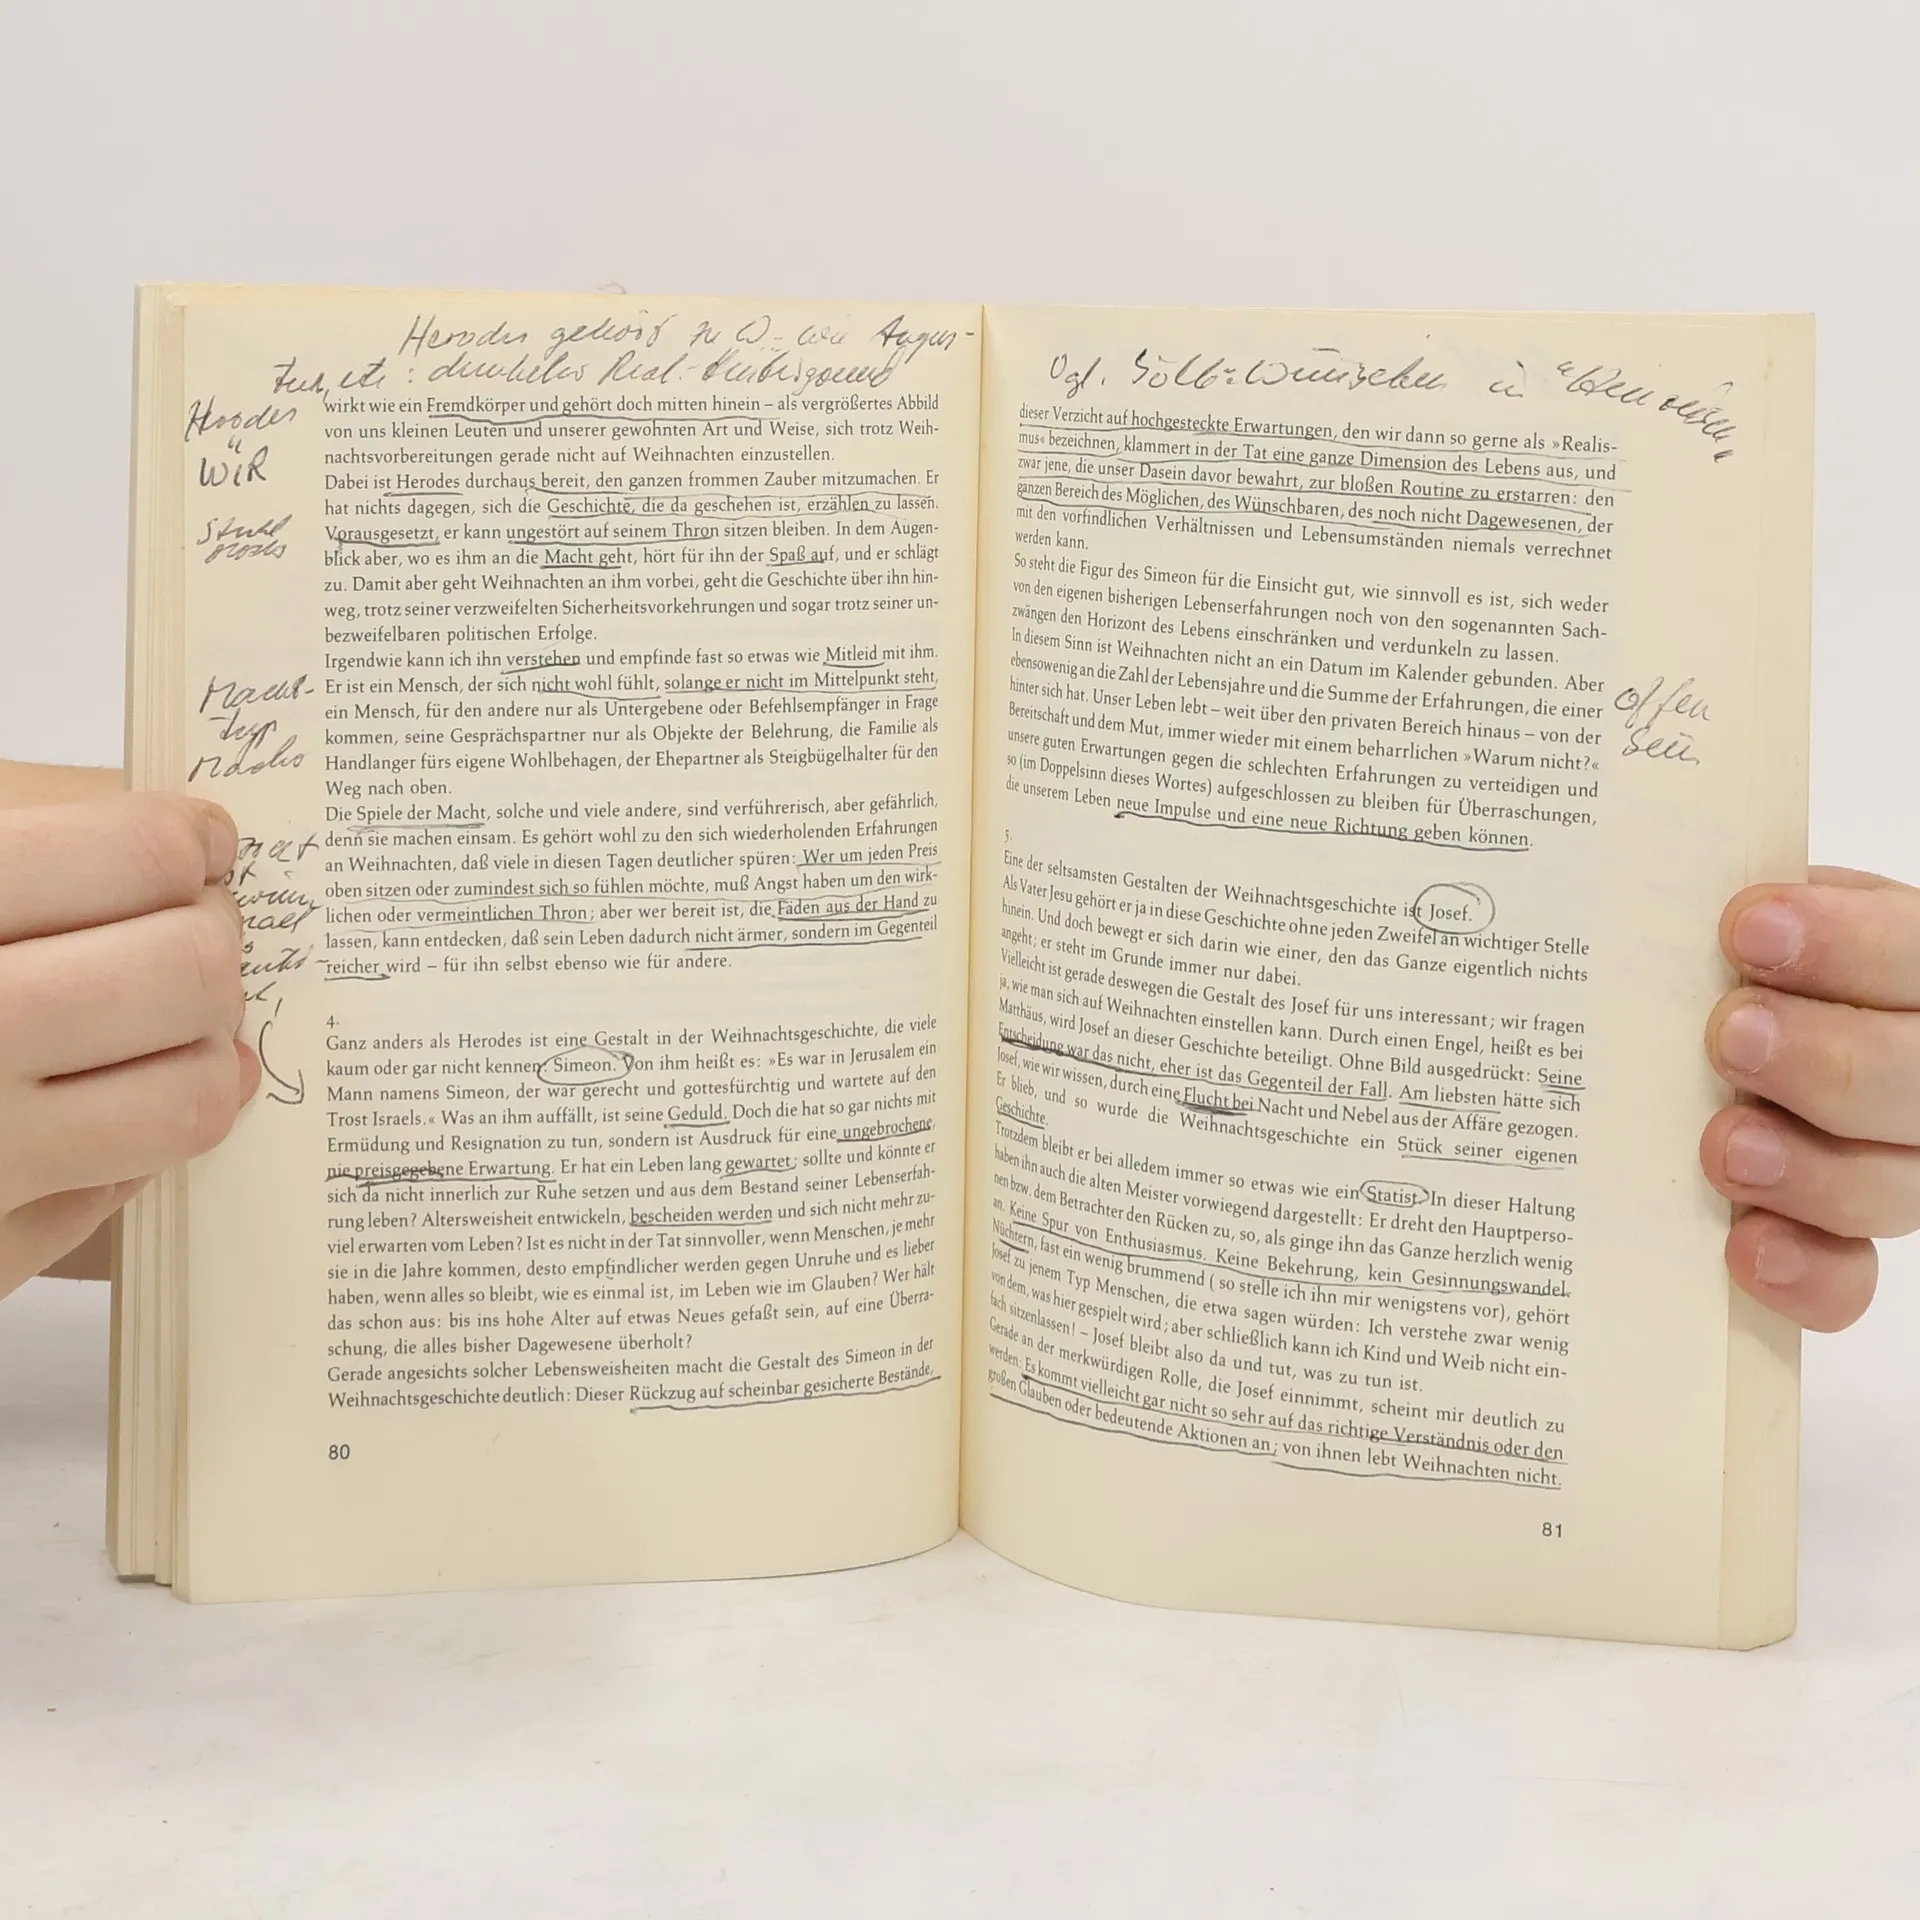 Herodes gehört zu W. wie Augus-
tus, etc: dunkeler Real-
Herodes
WIR
Macht-
typ
Macho
wirkt wie ein Fremdkörper und gehört doch mitten hinein – als vergrößertes Abbild
von uns kleinen Leuten und unserer gewohnten Art und Weise, sich trotz Weih-
nachtsvorbereitungen gerade nicht auf Weihnachten einzustellen.
Dabei ist Herodes durchaus bereit, den ganzen frommen Zauber mitzumachen. Er
hat nichts dagegen, sich die Geschichte, die da geschehen ist, erzählen zu lassen.
Vorausgesetzt, er kann ungestört auf seinem Thron sitzen bleiben. In dem Augen-
blick aber, wo es ihm an die Macht geht, hört für ihn der Spaß auf, und er schlägt
zu. Damit aber geht Weihnachten an ihm vorbei, geht die Geschichte über ihn hin-
weg, trotz seiner verzweifelten Sicherheitsvorkehrungen und sogar trotz seiner un-
bezweifelbaren politischen Erfolge.
Irgendwie kann ich ihn verstehen und empfinde fast so etwas wie Mitleid mit ihm.
Er ist ein Mensch, der sich nicht wohl fühlt, solange er nicht im Mittelpunkt steht,
ein Mensch, für den andere nur als Untergebene oder Befehlsempfänger in Frage
kommen, seine Gesprächspartner nur als Objekte der Belehrung, die Familie als
Handlanger fürs eigene Wohlbehagen, der Ehepartner als Steigbügelhalter für den
Weg nach oben.
Die Spiele der Macht, solche und viele andere, sind verführerisch, aber gefährlich,
denn sie machen einsam. Es gehört wohl zu den sich wiederholenden Erfahrungen
an Weihnachten, daß viele in diesen Tagen deutlicher spüren: Wer um jeden Preis
oben sitzen oder zumindest sich so fühlen möchte, muß Angst haben um den wirk-
lichen oder vermeintlichen Thron; aber wer bereit ist, die Fäden aus der Hand zu
lassen, kann entdecken, daß sein Leben dadurch nicht ärmer, sondern im Gegenteil
reicher wird – für ihn selbst ebenso wie für andere.
4.
Ganz anders als Herodes ist eine Gestalt in der Weihnachtsgeschichte, die viele
kaum oder gar nicht kennen: Simeon. Von ihm heißt es: »Es war in Jerusalem ein
Mann namens Simeon, der war gerecht und gottesfürchtig und wartete auf den
Trost Israels.« Was an ihm auffällt, ist seine Geduld. Doch die hat so gar nichts mit
Ermüdung und Resignation zu tun, sondern ist Ausdruck für eine ungebrochene,
nie preisgegebene Erwartung. Er hat ein Leben lang gewartet; sollte und könnte er
sich da nicht innerlich zur Ruhe setzen und aus dem Bestand seiner Lebenserfah-
rung leben? Altersweisheit entwickeln, bescheiden werden und sich nicht mehr zu-
viel erwarten vom Leben? Ist es nicht in der Tat sinnvoller, wenn Menschen, je mehr
sie in die Jahre kommen, desto empfindlicher werden gegen Unruhe und es lieber
haben, wenn alles so bleibt, wie es einmal ist, im Leben wie im Glauben? Wer hält
das schon aus: bis ins hohe Alter auf etwas Neues gefaßt sein, auf eine Überra-
schung, die alles bisher Dagewesene überholt?
Gerade angesichts solcher Lebensweisheiten macht die Gestalt des Simeon in der
Weihnachtsgeschichte deutlich: Dieser Rückzug auf scheinbar gesicherte Bestände,
80
Vgl. Sölle: Wünschen in
dieser Verzicht auf hochgesteckte Erwartungen, den wir dann so gerne als »Realis-
mus« bezeichnen, klammert in der Tat eine ganze Dimension des Lebens aus, und
zwar jene, die unser Dasein davor bewahrt, zur bloßen Routine zu erstarren: den
ganzen Bereich des Möglichen, des Wünschbaren, des noch nicht Dagewesenen, der
mit den vorfindlichen Verhältnissen und Lebensumständen niemals verrechnet
werden kann.
So steht die Figur des Simeon für die Einsicht gut, wie sinnvoll es ist, sich weder
von den eigenen bisherigen Lebenserfahrungen noch von den sogenannten Sach-
zwängen den Horizont des Lebens einschränken und verdunkeln zu lassen.
In diesem Sinn ist Weihnachten nicht an ein Datum im Kalender gebunden. Aber
ebensowenig an die Zahl der Lebensjahre und die Summe der Erfahrungen, die einer
hinter sich hat. Unser Leben lebt – weit über den privaten Bereich hinaus – von der
Bereitschaft und dem Mut, immer wieder mit einem beharrlichen »Warum nicht?«
unsere guten Erwartungen gegen die schlechten Erfahrungen zu verteidigen und
so (im Doppelsinn dieses Wortes) aufgeschlossen zu bleiben für Überraschungen,
die unserem Leben neue Impulse und eine neue Richtung geben können.
offen
sein
5.
Eine der seltsamsten Gestalten der Weihnachtsgeschichte ist Josef.
Als Vater Jesu gehört er ja in diese Geschichte ohne jeden Zweifel an wichtiger Stelle
hinein. Und doch bewegt er sich darin wie einer, den das Ganze eigentlich nichts
angeht; er steht im Grunde immer nur dabei.
Vielleicht ist gerade deswegen die Gestalt des Josef für uns interessant; wir fragen
ja, wie man sich auf Weihnachten einstellen kann. Durch einen Engel, heißt es bei
Matthäus, wird Josef an dieser Geschichte beteiligt. Ohne Bild ausgedrückt: Seine
Entscheidung war das nicht, eher ist das Gegenteil der Fall. Am liebsten hätte sich
Josef, wie wir wissen, durch eine Flucht bei Nacht und Nebel aus der Affäre gezogen.
Er blieb, und so wurde die Weihnachtsgeschichte ein Stück seiner eigenen
Geschichte.
Trotzdem bleibt er bei alledem immer so etwas wie ein Statist. In dieser Haltung
haben ihn auch die alten Meister vorwiegend dargestellt: Er dreht den Hauptperso-
nen bzw. dem Betrachter den Rücken zu, so, als ginge ihn das Ganze herzlich wenig
an. Keine Spur von Enthusiasmus. Keine Bekehrung, kein Gesinnungswandel.
Nüchtern, fast ein wenig brummend ( so stelle ich ihn mir wenigstens vor), gehört
Josef zu jenem Typ Menschen, die etwa sagen würden: Ich verstehe zwar wenig
von dem, was hier gespielt wird; aber schließlich kann ich Kind und Weib nicht ein-
fach sitzenlassen! – Josef bleibt also da und tut, was zu tun ist.
Gerade an der merkwürdigen Rolle, die Josef einnimmt, scheint mir deutlich zu
werden: Es kommt vielleicht gar nicht so sehr auf das richtige Verständnis oder den
großen Glauben oder bedeutende Aktionen an; von ihnen lebt Weihnachten nicht.
81